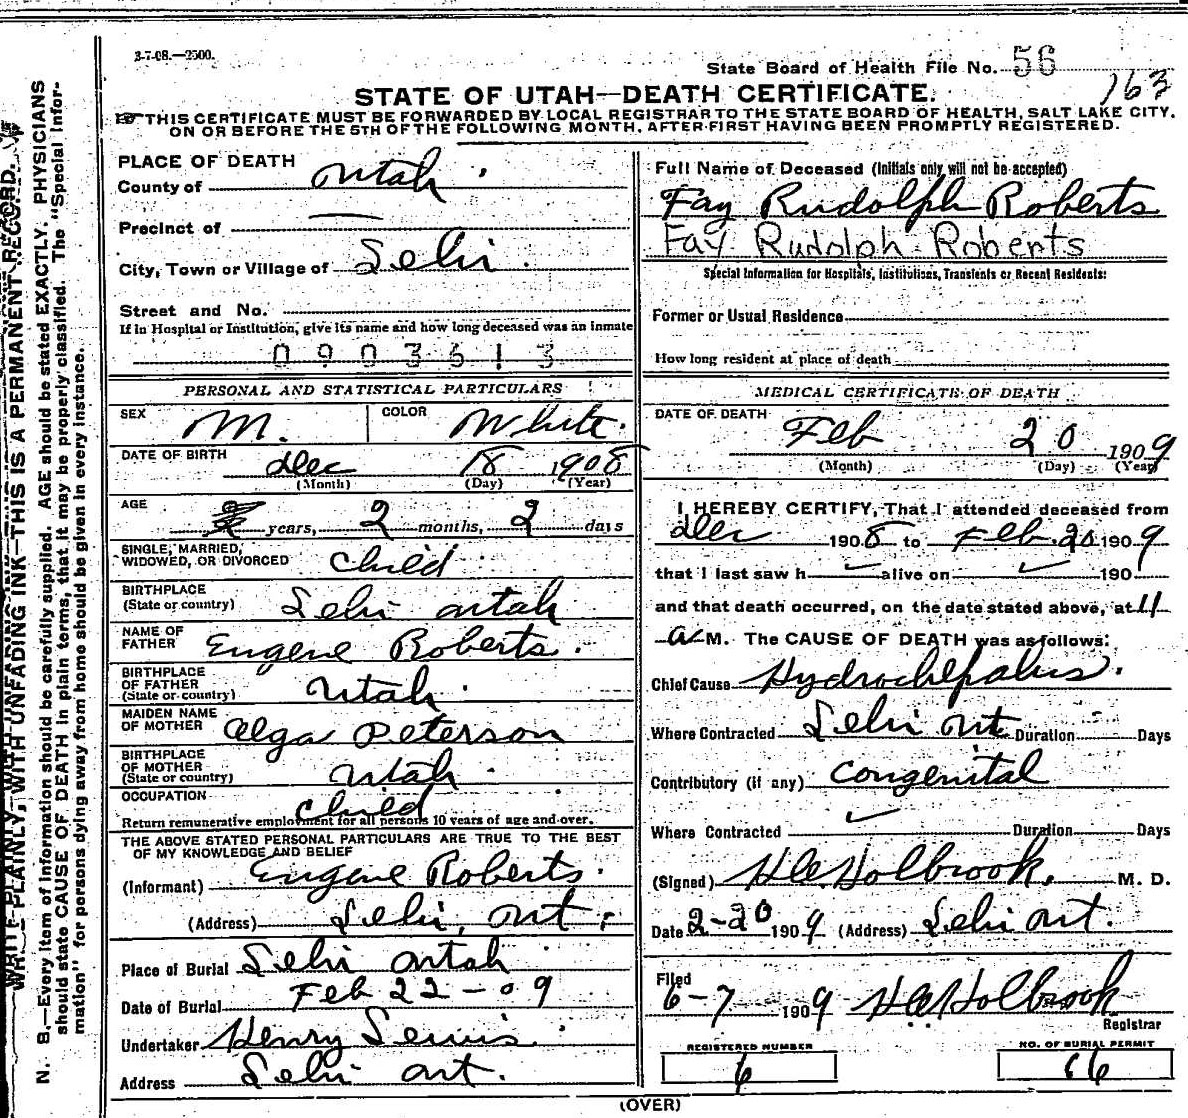 3-7-08.—2500.
State Board of Health File No. 56
163
STATE OF UTAH—DEATH CERTIFICATE.
THIS CERTIFICATE MUST BE FORWARDED BY LOCAL REGISTRAR TO THE STATE BOARD OF HEALTH, SALT LAKE CITY,
ON OR BEFORE THE 5TH OF THE FOLLOWING MONTH, AFTER FIRST HAVING BEEN PROMPTLY REGISTERED.
PLACE OF DEATH
County of Utah
Precinct of
City, Town or Village of Lehi
Street and No.
If in Hospital or Institution, give its name and how long deceased was an inmate
0903613
PERSONAL AND STATISTICAL PARTICULARS
SEX M. COLOR White
DATE OF BIRTH Dec 18 1908
(Month) (Day) (Year)
AGE years, 2 months, 2 days
SINGLE, MARRIED,
WIDOWED, OR DIVORCED Child
BIRTHPLACE
(State or country) Lehi Utah
NAME OF
FATHER Eugene Roberts
BIRTHPLACE
OF FATHER
(State or country) Utah
MAIDEN NAME
OF MOTHER Alga Peterson
BIRTHPLACE
OF MOTHER
(State or country) Utah
OCCUPATION Child
Return remunerative employment for all persons 10 years of age and over.
THE ABOVE STATED PERSONAL PARTICULARS ARE TRUE TO THE BEST
OF MY KNOWLEDGE AND BELIEF
(Informant) Eugene Roberts
(Address) Lehi, Ut.
Place of Burial Lehi Utah
Date of Burial Feb 22-09
Undertaker Henry Lewis
Address Lehi Ut.
Full Name of Deceased (Initials only will not be accepted)
Fay Rudolph Roberts
Fay Rudolph Roberts
Special Information for Hospitals, Institutions, Transients or Recent Residents:
Former or Usual Residence
How long resident at place of death
MEDICAL CERTIFICATE OF DEATH
DATE OF DEATH
Feb 20 1909
(Month) (Day) (Year)
I HEREBY CERTIFY, That I attended deceased from
Dec 1908 to Feb. 20 1909
that I last saw h alive on 190
and that death occurred, on the date stated above, at 11
a M. The CAUSE OF DEATH was as follows:
Chief Cause Hydrochepalus.
Where Contracted Lehi Ut Duration Days
Contributory (if any) Congenital
Where Contracted Duration Days
(Signed) Holbrook, M. D.
Date 2-20 1909 (Address) Lehi Ut.
Filed
6-7 1909 Holbrook
Registrar
REGISTERED NUMBER
6
NO. OF BURIAL PERMIT
66
(OVER)
WRITE PLAINLY, WITH UNFADING INK—THIS IS A PERMANENT RECORD.
N. B.—Every item of information should be carefully supplied. AGE should be stated EXACTLY. PHYSICIANS
should state CAUSE OF DEATH in plain terms, that it may be properly classified. The "Special Infor-
mation" for persons dying away from home should be given in every instance.